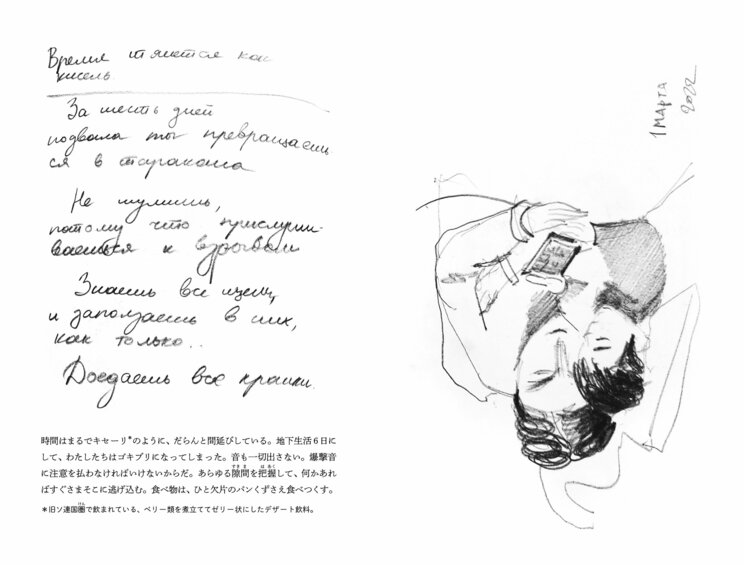 Время тянется как
кисель.
За шесть дней
подвала ты превращаешь
ся в таракана
Не шумишь,
потому что прислуши-
ваешься к взрывам
Знаешь все щели,
и заползаешь в них,
как только..
Доедаешь все крошки.
時間はまるでキセーリ*のように、だらんと間延びしている。地下生活6日に
して、わたしたちはゴキブリになってしまった。音も一切出さない。爆撃音
に注意を払わなければいけないからだ。あらゆる隙間を把握して、何かあれ
ばすぐさまそこに逃げ込む。食べ物は、ひと欠片のパンくずさえ食べつくす。
*旧ソ連国圏で飲まれている、ベリー類を煮立ててゼリー状にしたデザート飲料。
1 МАРТА
2022